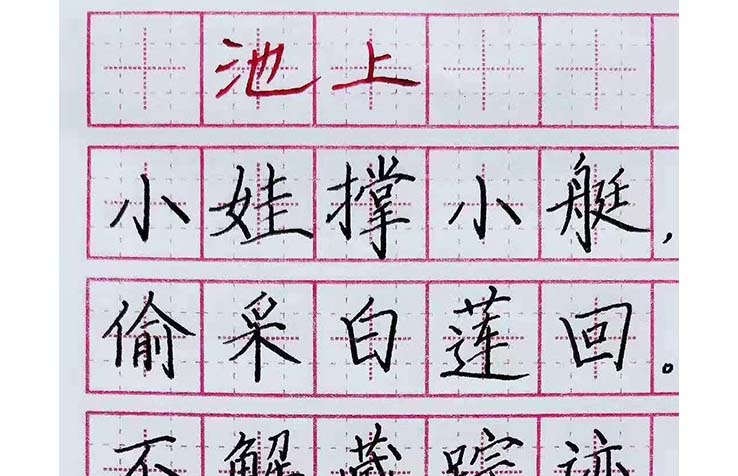 池上
小娃撑小艇，
偷采白莲回。
不解藏踪迹